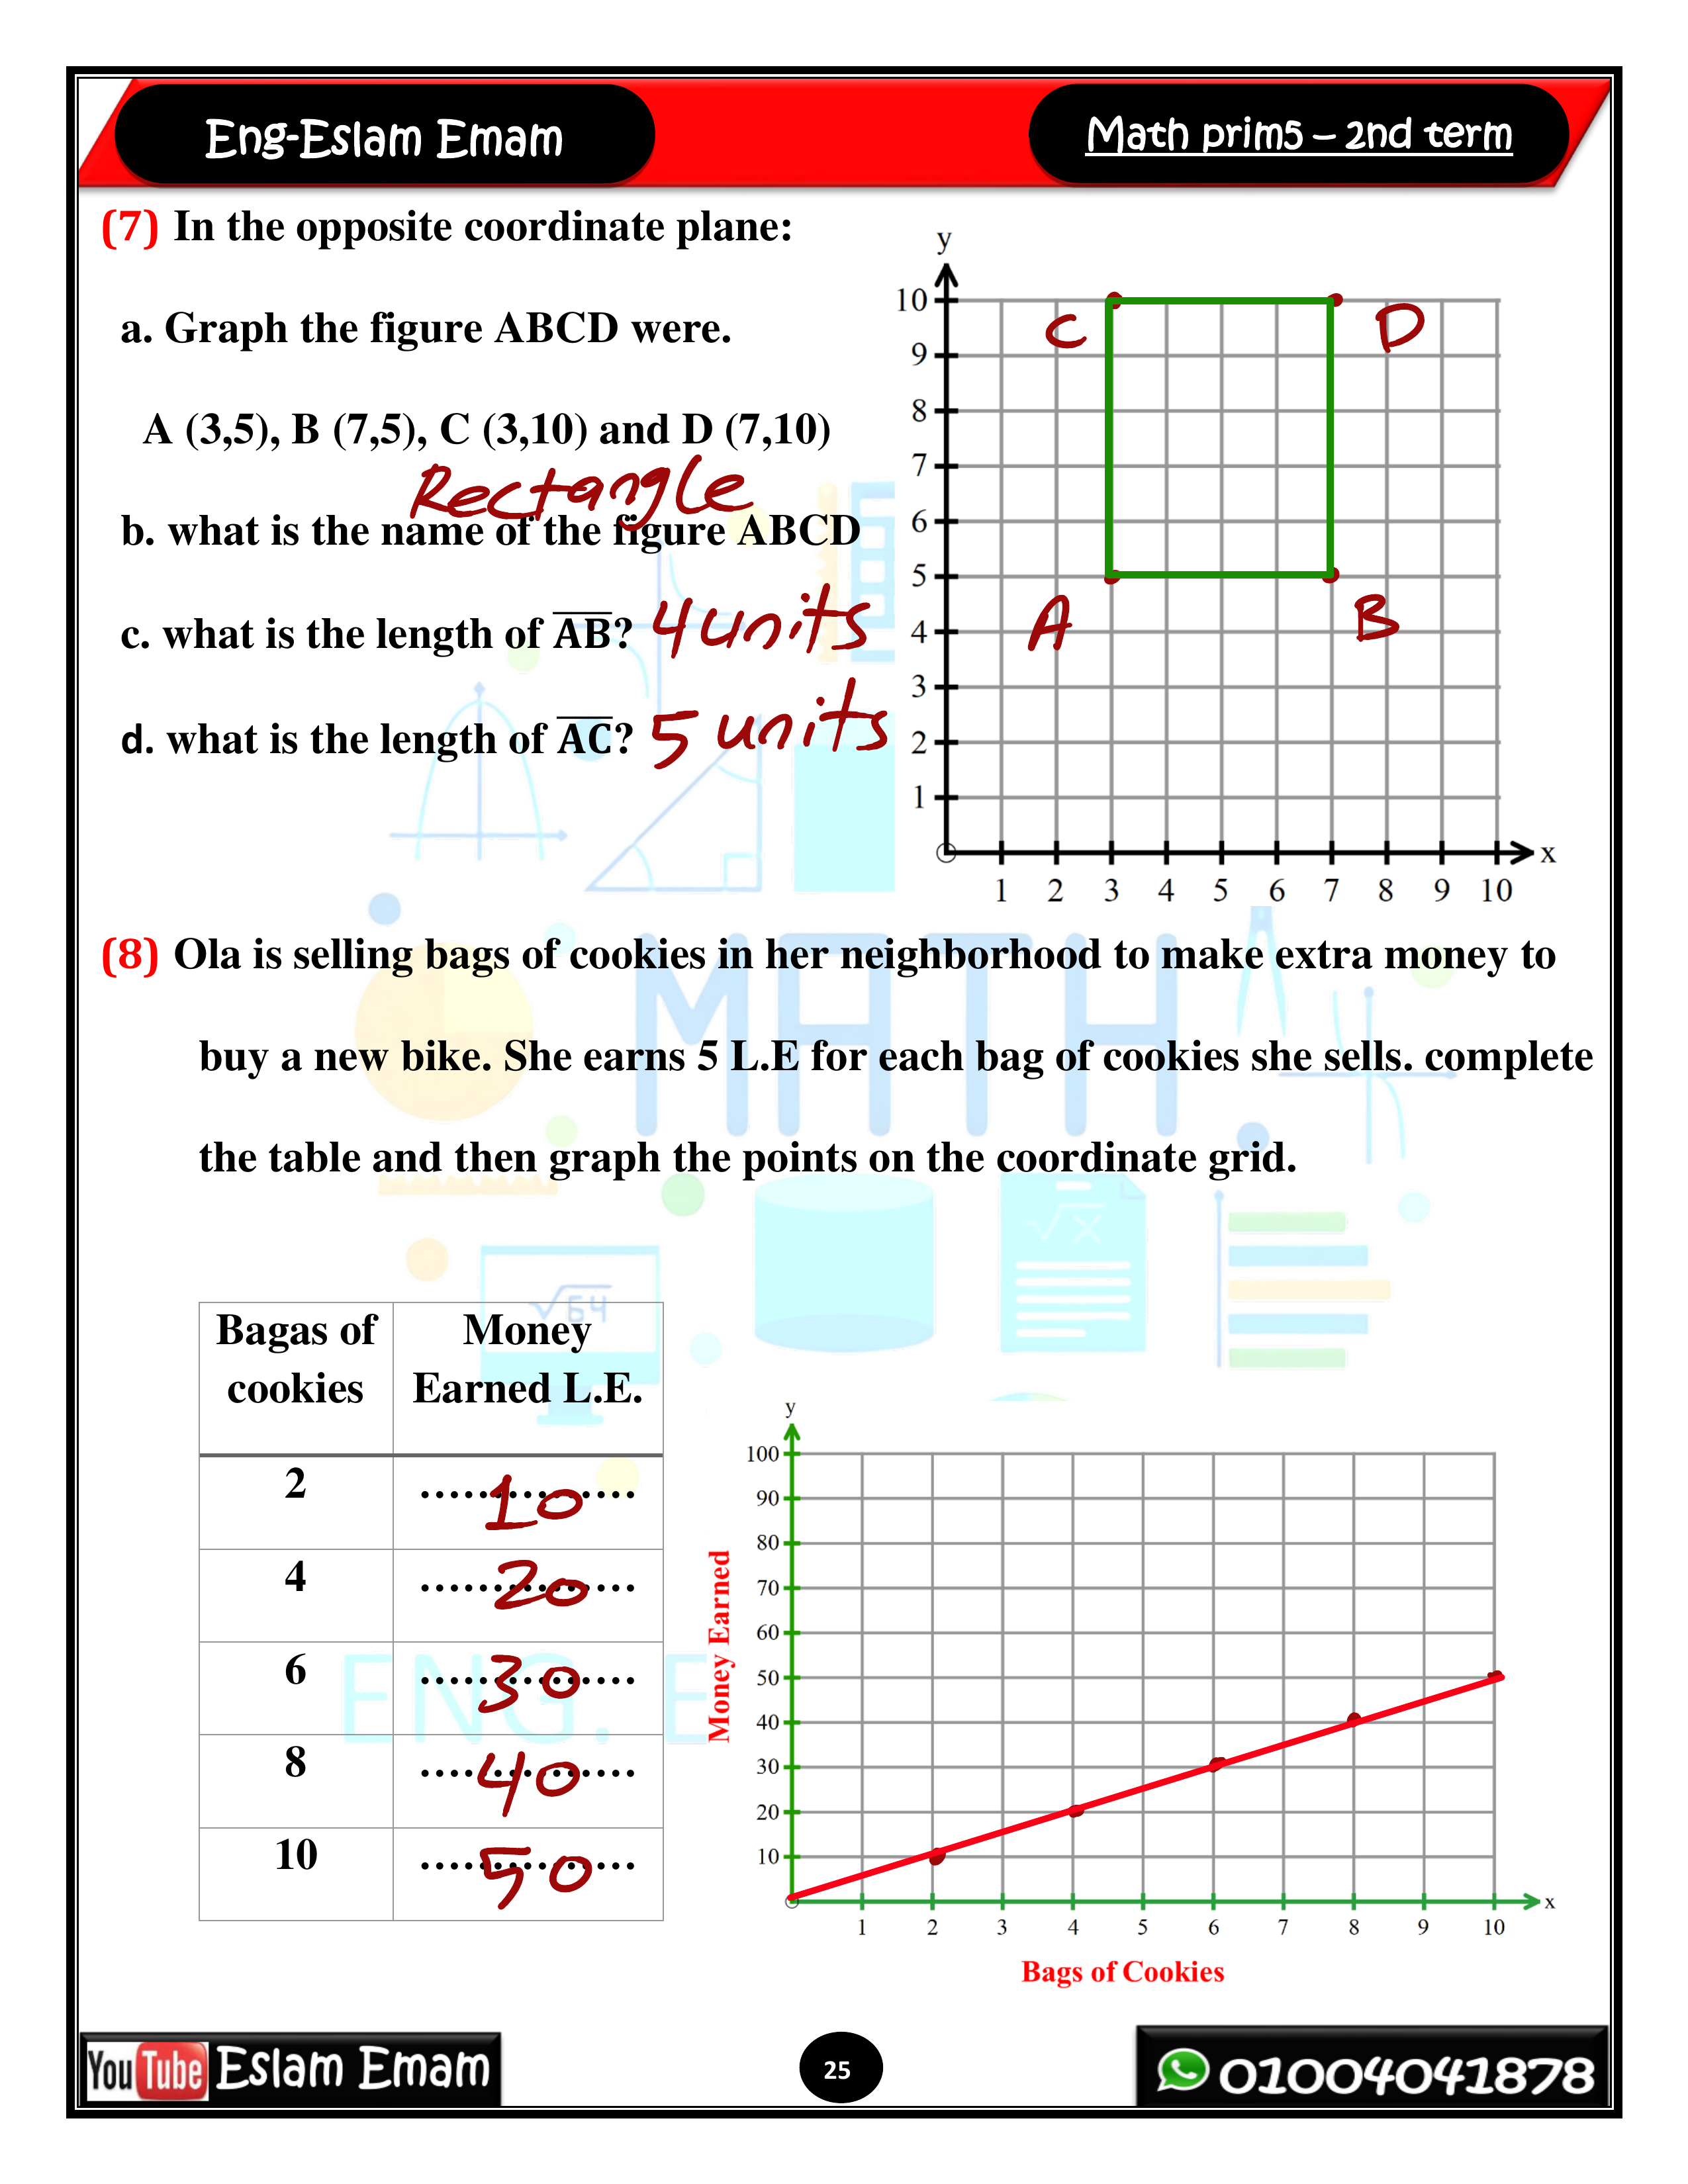 Eng-Eslam Emam
Math prim5 – 2nd term
(7) In the opposite coordinate plane:
a. Graph the figure ABCD were.
A (3,5), B (7,5), C (3,10) and D (7,10)
Rectangle
b. what is the name of the figure ABCD
c. what is the length of AB? 4 units
d. what is the length of AC? 5 units
y
10
9
8
7
6
5
4
3
2
1
C
D
A
B
x
1 2 3 4 5 6 7 8 9 10
(8) Ola is selling bags of cookies in her neighborhood to make extra money to
buy a new bike. She earns 5 L.E for each bag of cookies she sells. complete
the table and then graph the points on the coordinate grid.
MATH
√x
√64
Bagas of cookies
Money Earned L.E.
2 ............... 10
4 ............... 20
6 ............... 30
8 ............... 40
10 ............... 50
ENG. E
y
100
90
80
70
60
50
40
30
20
10
Money Earned
x
1 2 3 4 5 6 7 8 9 10
Bags of Cookies
YouTube Eslam Emam
25
01004041878